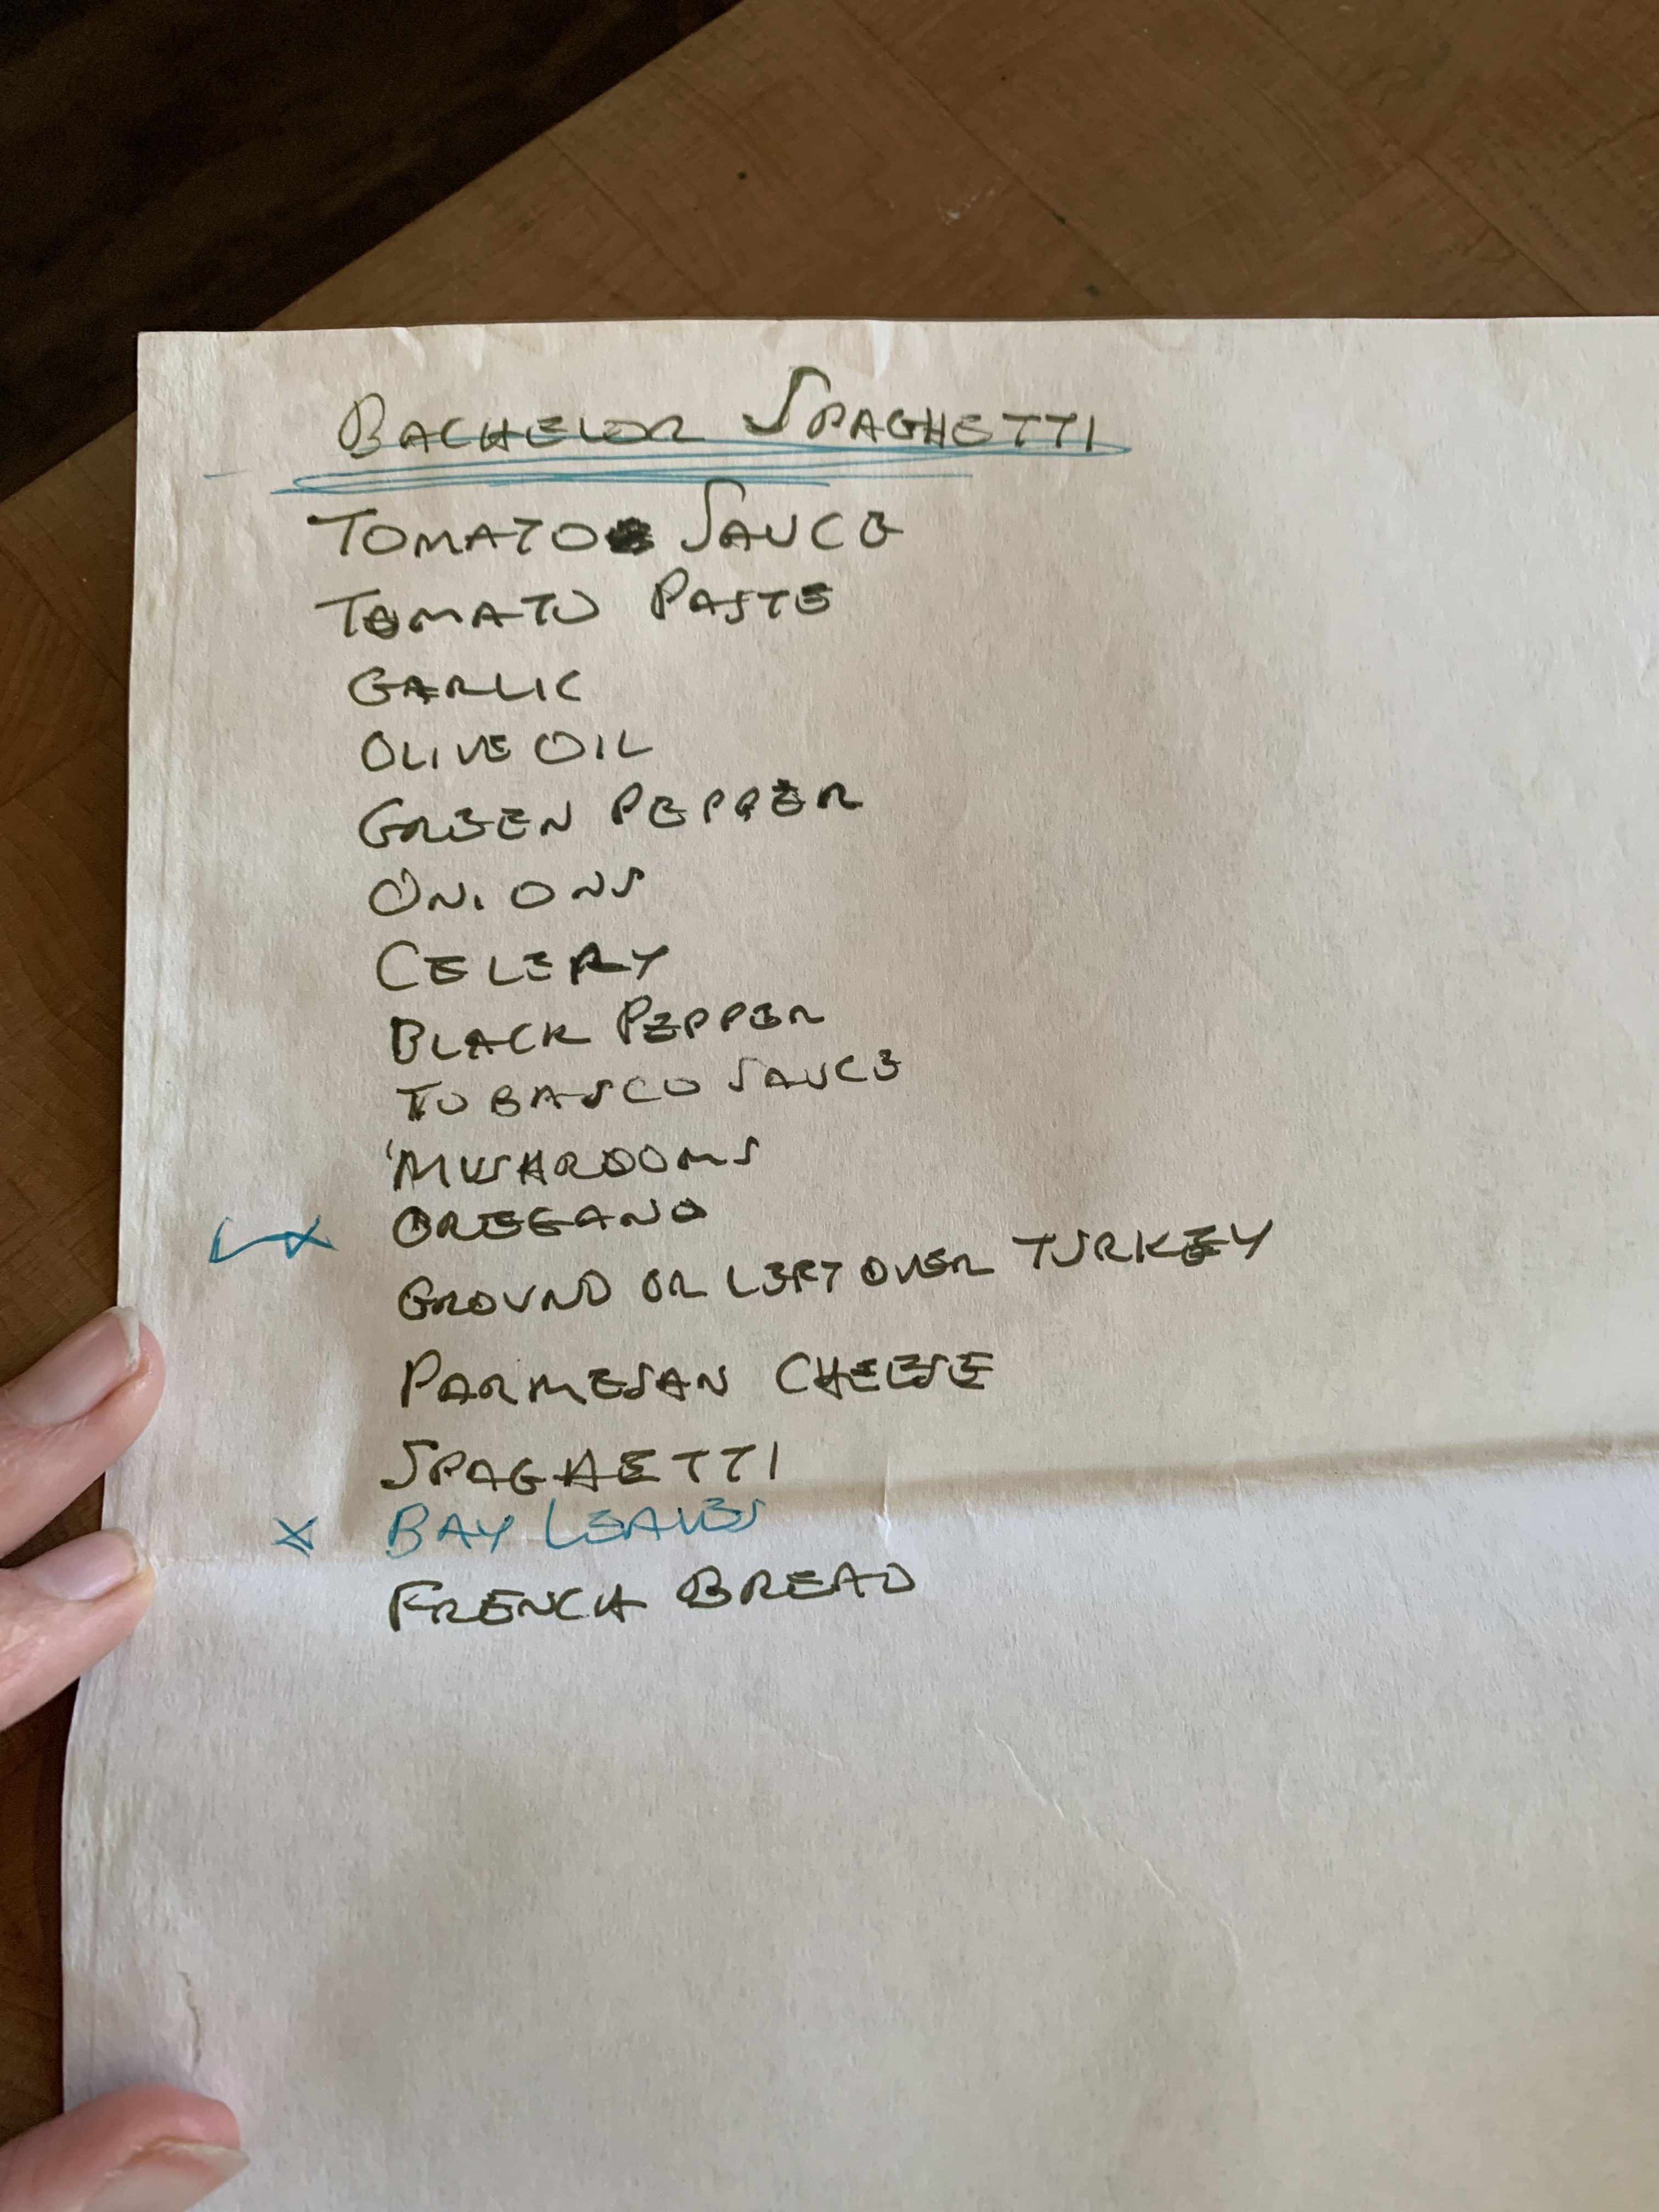 BACHELOR SPAGHETTI
TOMATO SAUCE
TOMATO PASTE
GARLIC
OLIVE OIL
GREEN PEPPER
ONIONS
CELERY
BLACK PEPPER
TOBASCO SAUCE
MUSHROOMS
OREGANO
GROUND OR LEFT OVER TURKEY
PARMESAN CHEESE
SPAGHETTI
BAY LEAVES
FRENCH BREAD